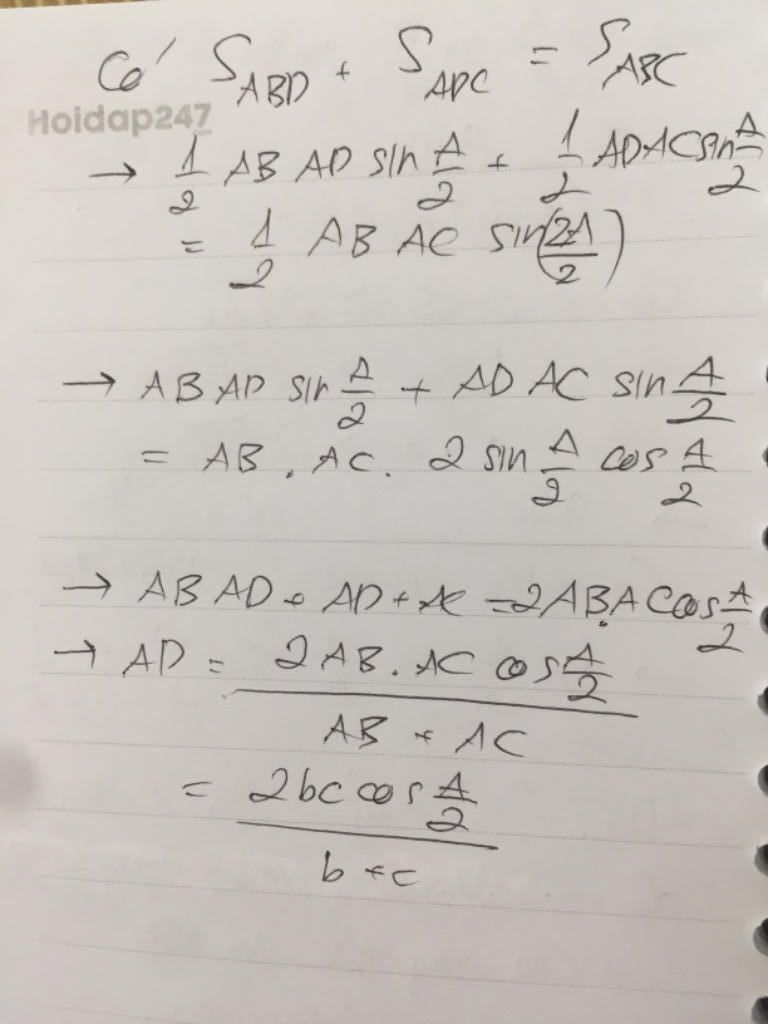 Có S_ABD + S_ADC = S_ABC
Hoidap247
→ 1/2 AB AD sin A/2 + 1/2 AD AC sin A/2
= 1/2 AB AC sin(2A/2)
→ AB AD sin A/2 + AD AC sin A/2
= AB . AC . 2 sin A/2 cos A/2
→ AB AD + AD + AC = 2AB.AC cos A/2
→ AD = 2AB . AC cos A/2 / AB + AC
= 2bc cos A/2 / b + c